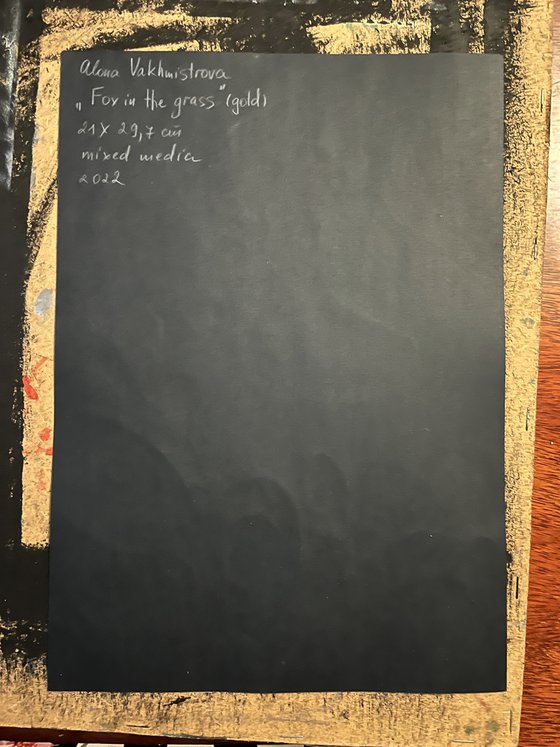 Alona Vakhmistrova
„Fox in the grass" (gold)
21 x 29,7 cm
mixed media
2022